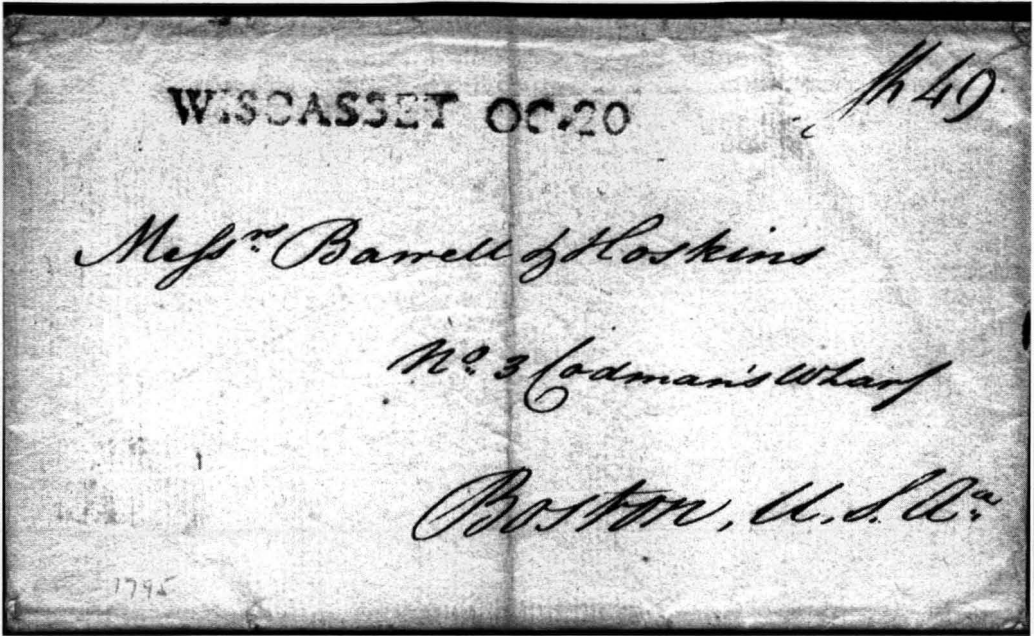 WISCASSET OC. 20
Sh 49
Messrs. Barrell & Hoskins
No. 3 Codman's Wharf
Boston, U. S. Aa.
1795